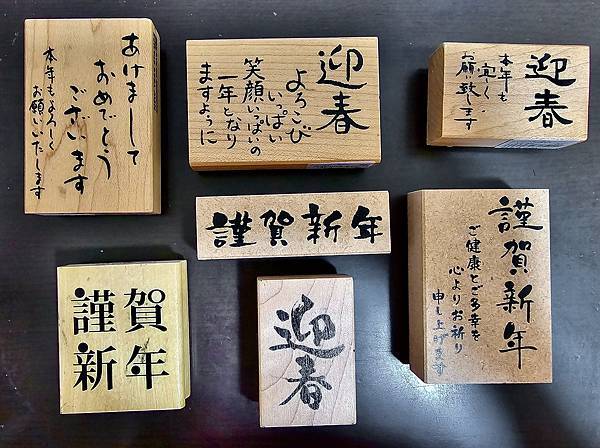 あけまして
おめでとう
ございます
本年もよろしく
お願いいたします
迎春
よろこび
いっぱい
笑顔いっぱいの
一年となり
ますように
迎春
本年も
宜しく
お願い致します
謹賀新年
謹賀新年
ご健康とご多幸を
心よりお祈り
申し上げます
謹賀
新年
迎春